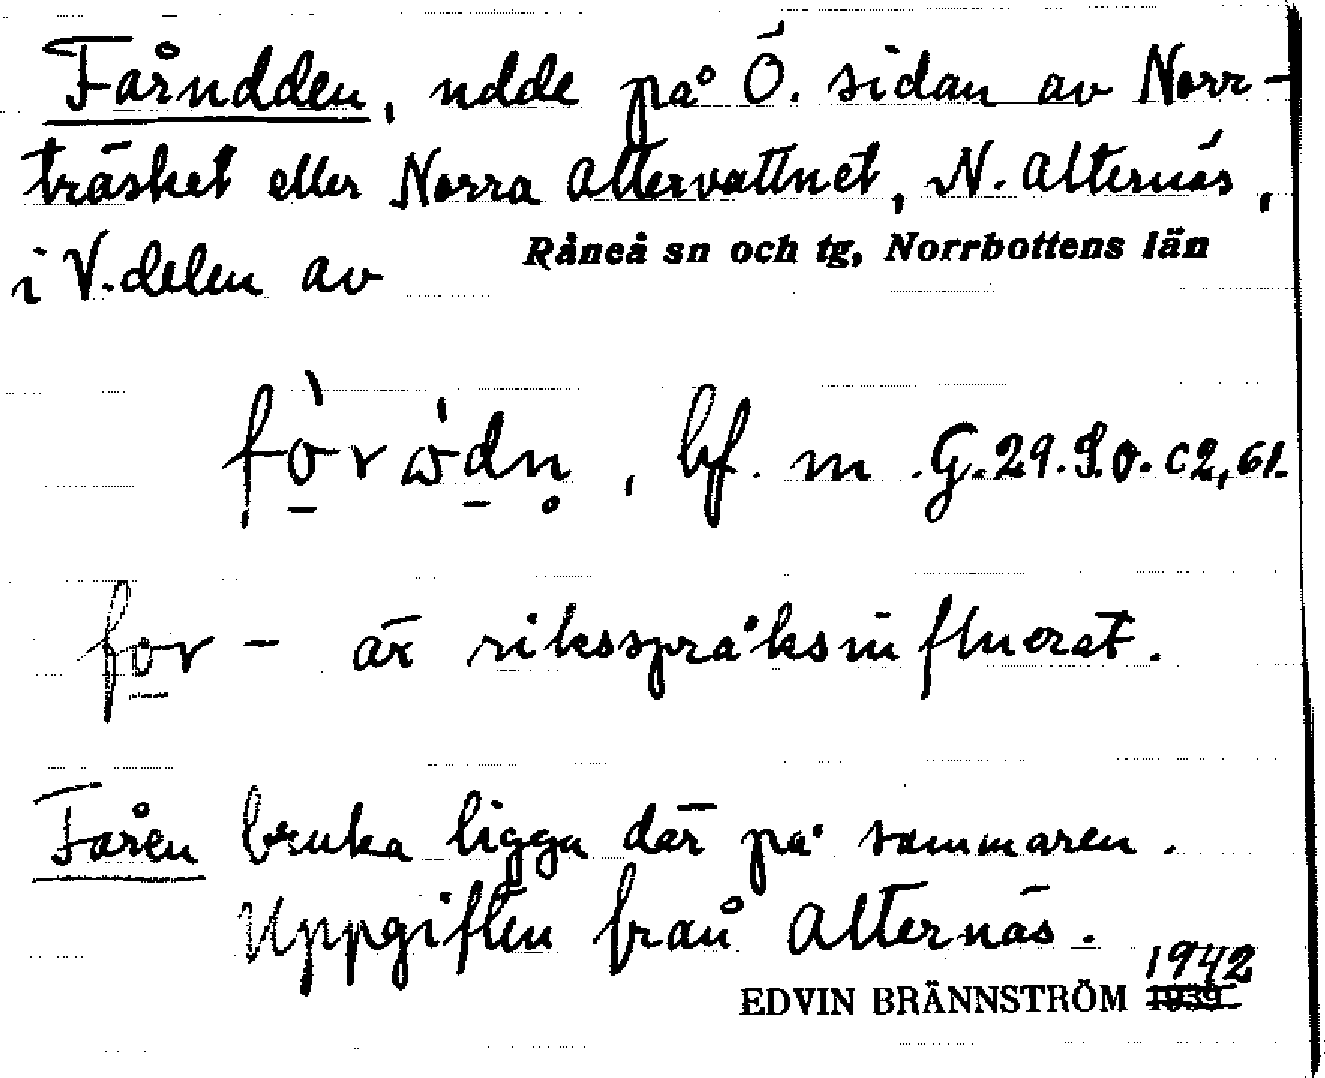 Fårudden, udde på Ö. sidan av Norr-
träsket eller Norra Altervattnet, N. Alternäs,
i V. delen av Råneå sn och tg, Norrbottens län
bf. m G.29.S.O. c2,61.
for- är riksspråksinfluerat.
Fåren bruka ligga där på sommaren.
Uppgiften från Alternäs.
1942
EDVIN BRÄNNSTRÖM 1939